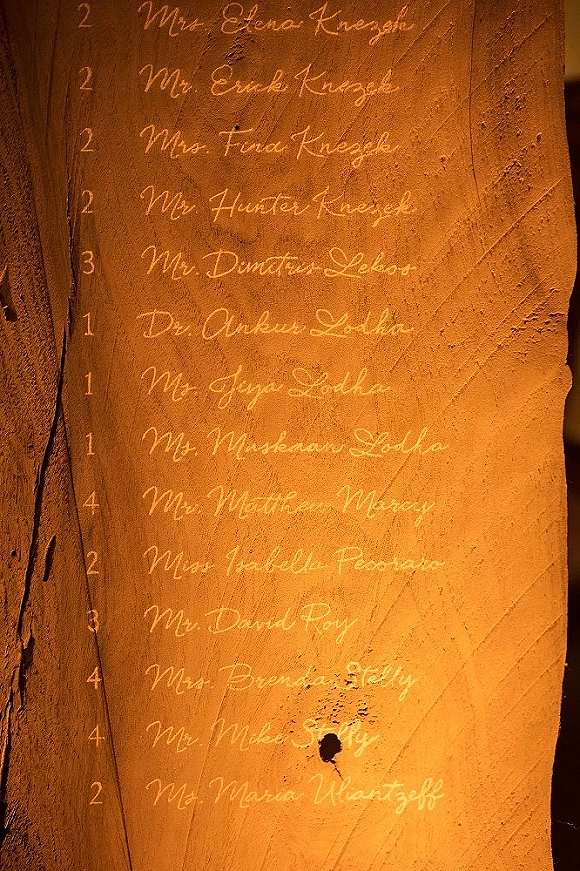 2 Mrs. Elena Knezek
2 Mr. Erick Knezek
2 Mrs. Fina Knezek
2 Mr. Hunter Knezek
3 Mr. Dimitris Lekos
1 Dr. Ankur Lodha
1 Ms. Jiya Lodha
1 Ms. Muskaan Lodha
4 Mr. Matthew Marcy
2 Miss Isabella Pecoraro
3 Mr. David Roy
4 Mrs. Brenda Stelly
4 Mr. Mike Stelly
2 Ms. Maria Uliantzeff